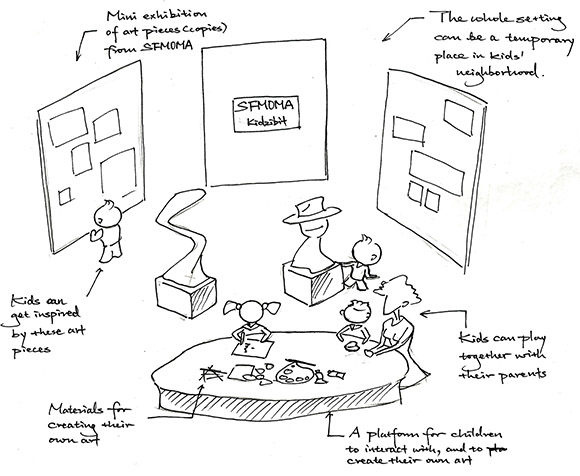 Mini exhibition
of art pieces (copies)
from SFMOMA
The whole setting
can be a temporary
place in kids'
neighborhood.
SFMOMA
Kidzibit
Kids can
get inspired
by these art
pieces
Kids can play
together with
their parents
Materials for
creating their
own art
A platform for children
to interact with, and to
create their own art